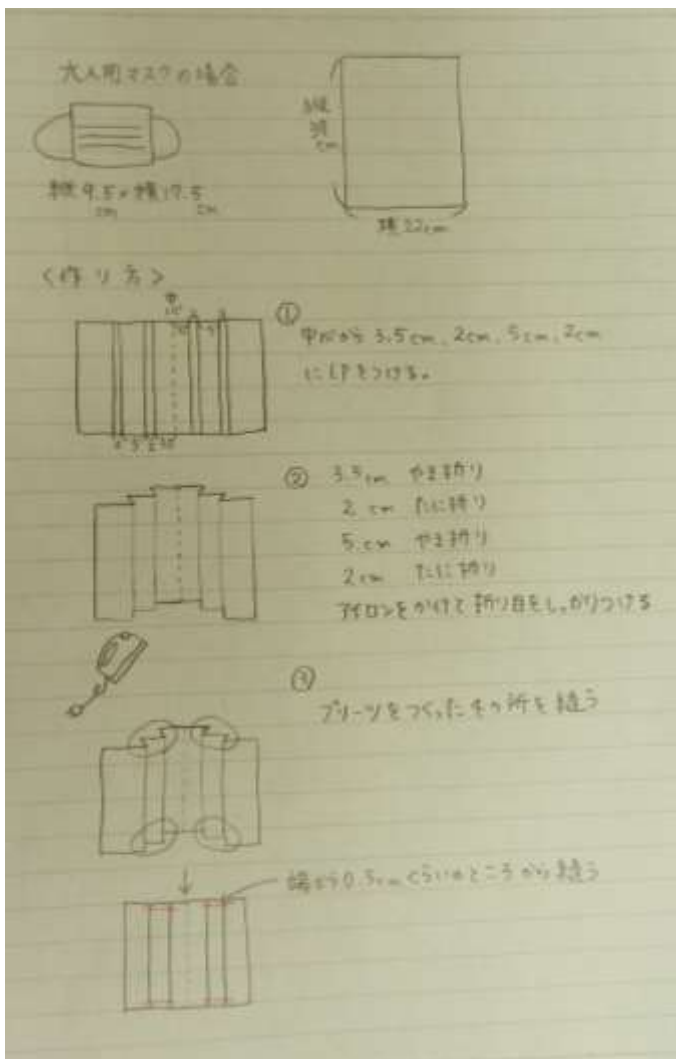 大人用マスクの場合
縦9.5×横17.5
cm cm
縦
cm
横22cm
<作り方>
①
中心から 3.5cm、2cm、5cm、2cm
に印をつける。
② 3.5cm やま折り
2cm たに折り
5cm やま折り
2cm たに折り
アイロンをかけて折り目をしっかりつける
③
プリーツをつくった4つ所を縫う
端から0.5cmくらいのところから縫う